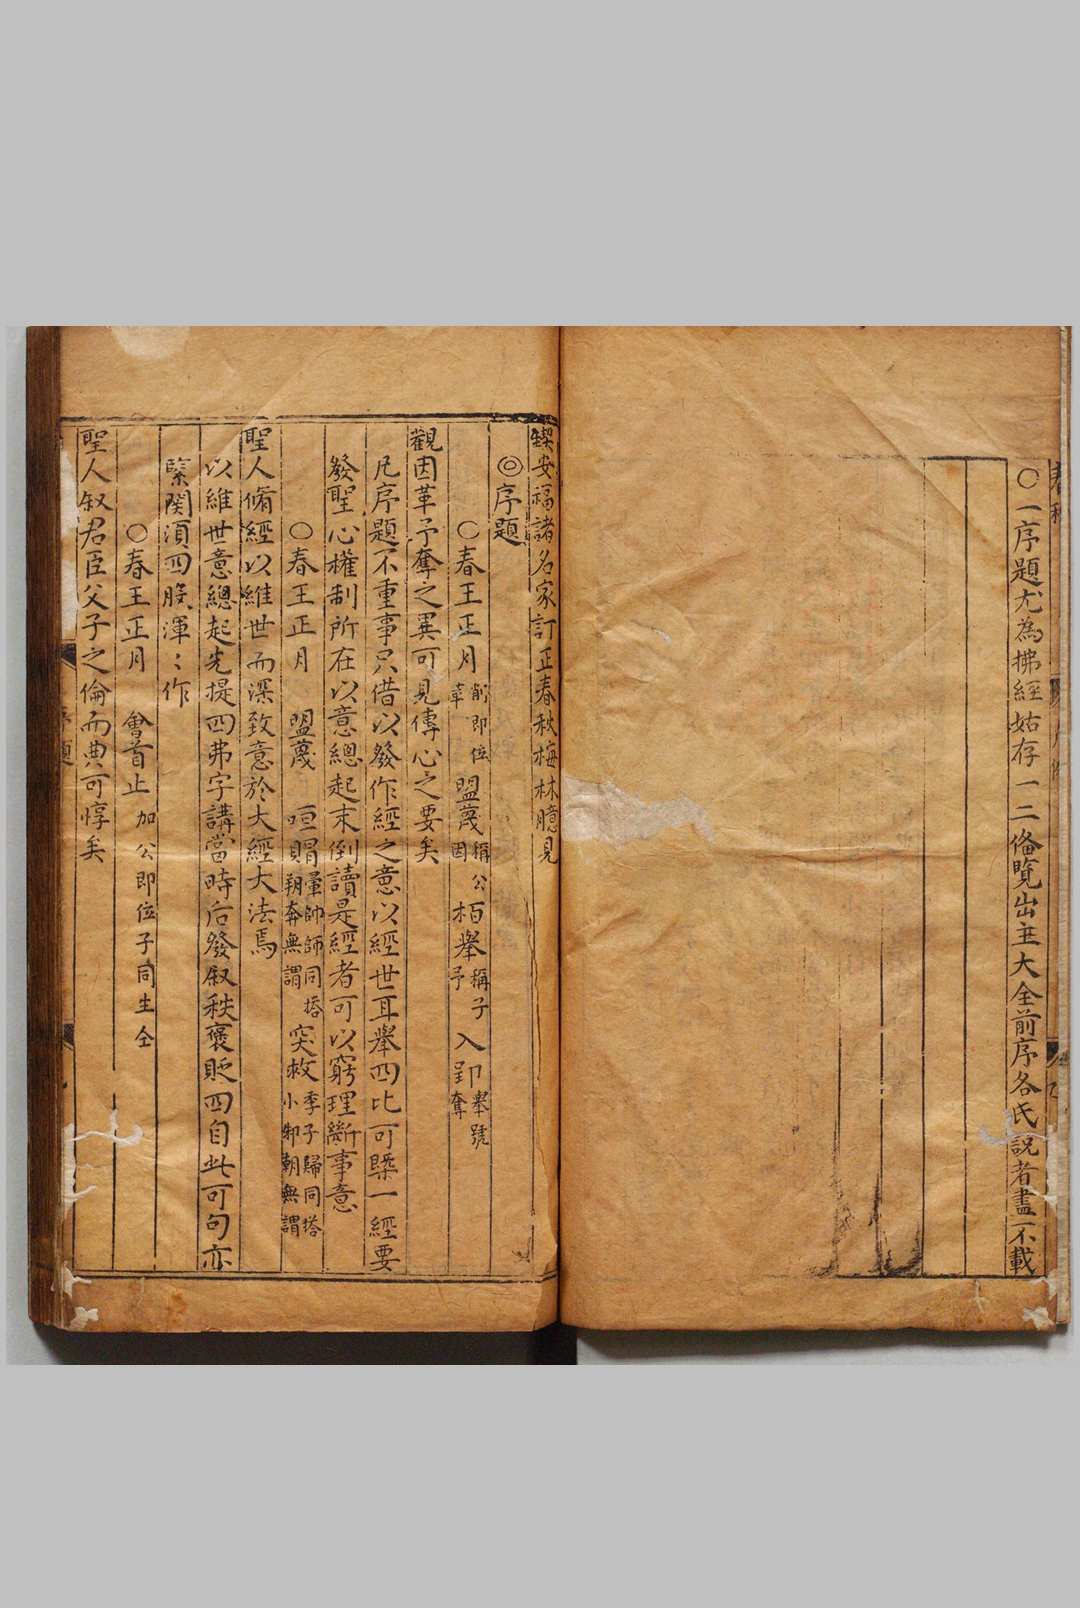 ○一序題尤為拂經姑存一二俻覽出主大全前序各氏說者盡不載
鍥安福諸名家訂正春秋梅林臆見
◎序題
○春王正月 削即位革 盟蔑 稱公因 栢舉 稱子予 入郢 舉號奪
觀因革予奪之異可見傳心之要矣
凡序題不重事只借以發作經之意以經世耳舉四比可槩一經要
發聖心權制所在以意總起末倒讀是經者可以窮理斷事意
○春王正月 盟蔑 咺賵 翬帥師同搭朔奔無謂 突救 季子歸同搭小邾朝無謂
聖人脩經以維世而深致意於大經大法焉
以維世意總起先提四弗字講當時后發叙秩褒貶四自此可句亦
緊関須四股渾〻作
○春王正月 會首止 加公即位子同生仝
聖人叙君臣父子之倫而典可惇矣